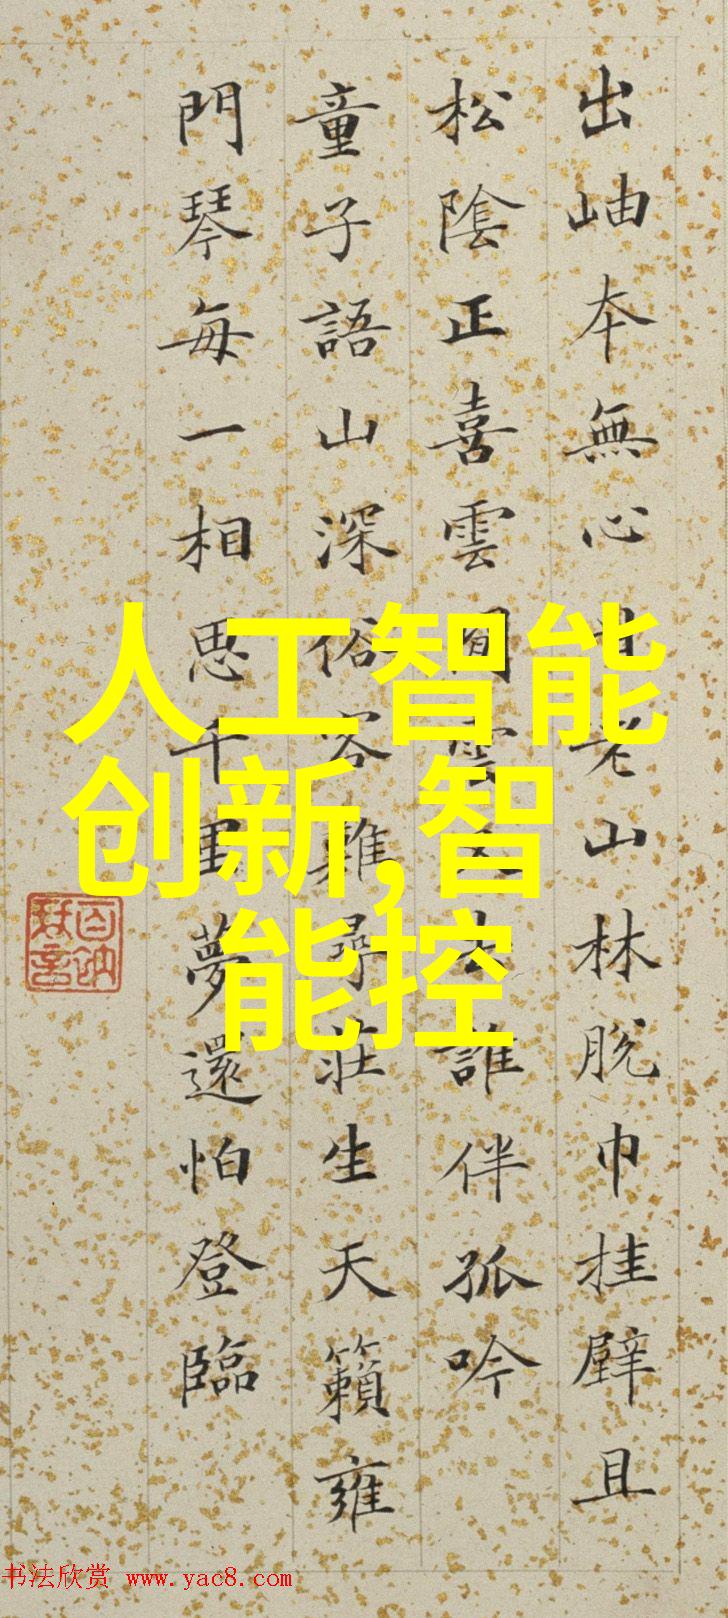 出岫本無心老山林脫巾挂壁且
松陰正喜雲雲誰伴孤吟
童子語山深俗客難尋莊生天籟雍
門琴每一相思千里夢還怕登臨
人工智能
创新,智
能控
书法欣赏 www.yac8.com